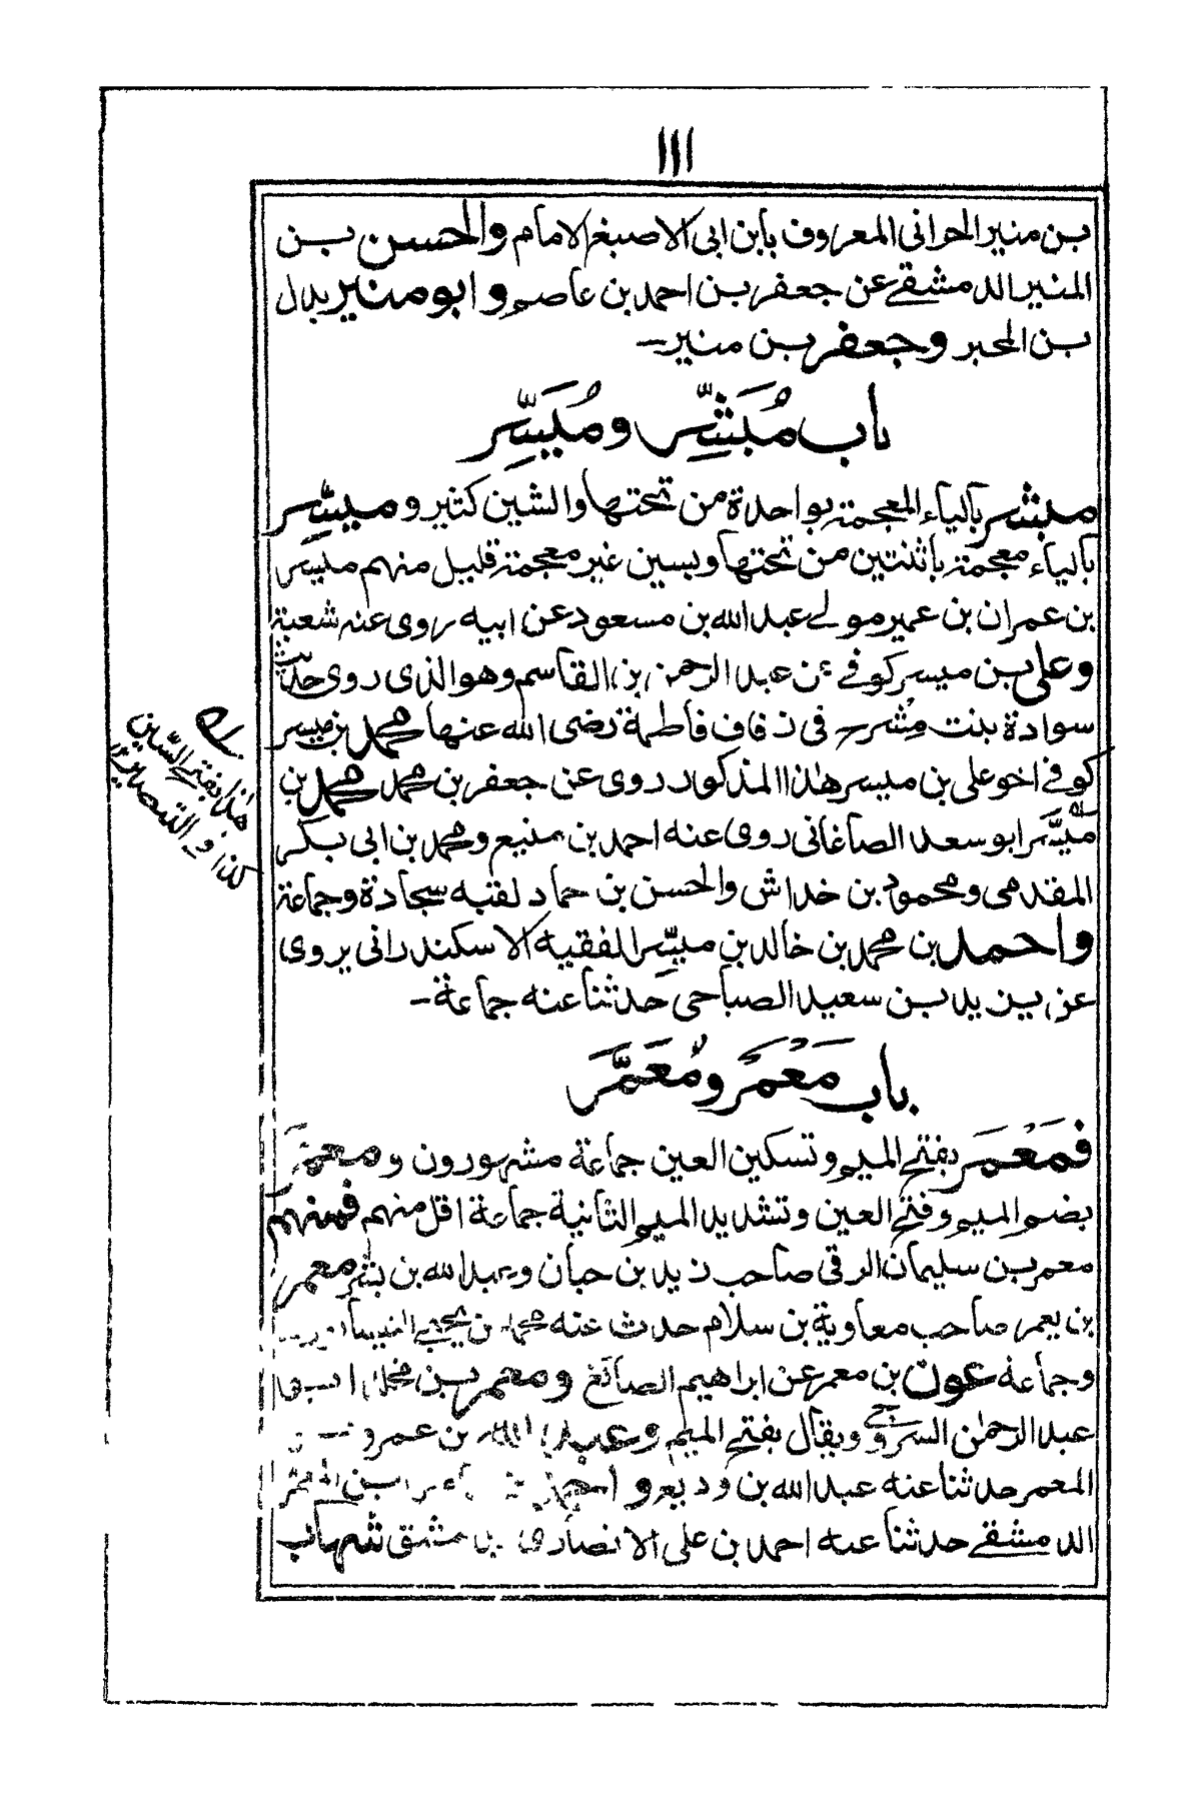 ١١١
بن منير الحرانى المعروف بابن ابى الاصبغ الامام والحسن بن
المنير الدمشقے عن جعفر بن احمد بن عاصم و ابو منير بدل
بن المحبر وجعفر بن منير
باب مُبَشِّر ومُيَسِّر
مبشر بالباء المعجمة بواحدة من تحتها والشين كثير و ميسِّر
بالياء معجمة باثنتين من تحتها وبسين غير معجمة قليل منهم ميسر
بن عمران بن عمير مولے عبد الله بن مسعود عن ابيه روى عنه شعبة
وعلى بن ميسر كوفے عن عبد الرحمن بن القاسم وهو الذى روى حديث
سوادة بنت مِشرح فى زفاف فاطمة رضى الله عنها محمد بن ميسر
كوفے اخو على بن ميسر هذا المذكور روى عن جعفر بن محمد محمد بن
ميسَّر ابو سعد الصاغانى روى عنه احمد بن منيع ومحمد بن ابى بكر
المقدمى ومحمود بن خداش والحسن بن حماد لقبه سجادة وجماعة
واحمد بن محمد بن خالد بن ميسِّر الفقيه الاسكندرانى يروى
عن يزيد بن سعيد الصباحى حدثنا عنه جماعة
باب مَعْمَر ومُعَمَّر
فمَعْمَر بفتح الميم وتسكين العين جماعة مشهورون ومعمر
بضم الميم وفتح العين وتشديد الميم الثانية جماعة اقل منهم فمنهم
معمر بن سليمان الرقى صاحب زيد بن حبان وعبد الله بن بشر معمر
بن يعمر صاحب معاوية بن سلام حدث عنه محمد بن يحيى
وجماعة عون بن معمر عن ابراهيم الصائغ ومعمر بن مخلد
عبد الرحمٰن السروجى ويقال بفتح الميم وعبد الله بن عمرو بن
المعمر حدثنا عنه عبد الله بن وديع و
الدمشقے حدثنا عنه احمد بن على الانصارى بدمشق شهاب
هٰذا بفتح السّين
كذا فى التبصير